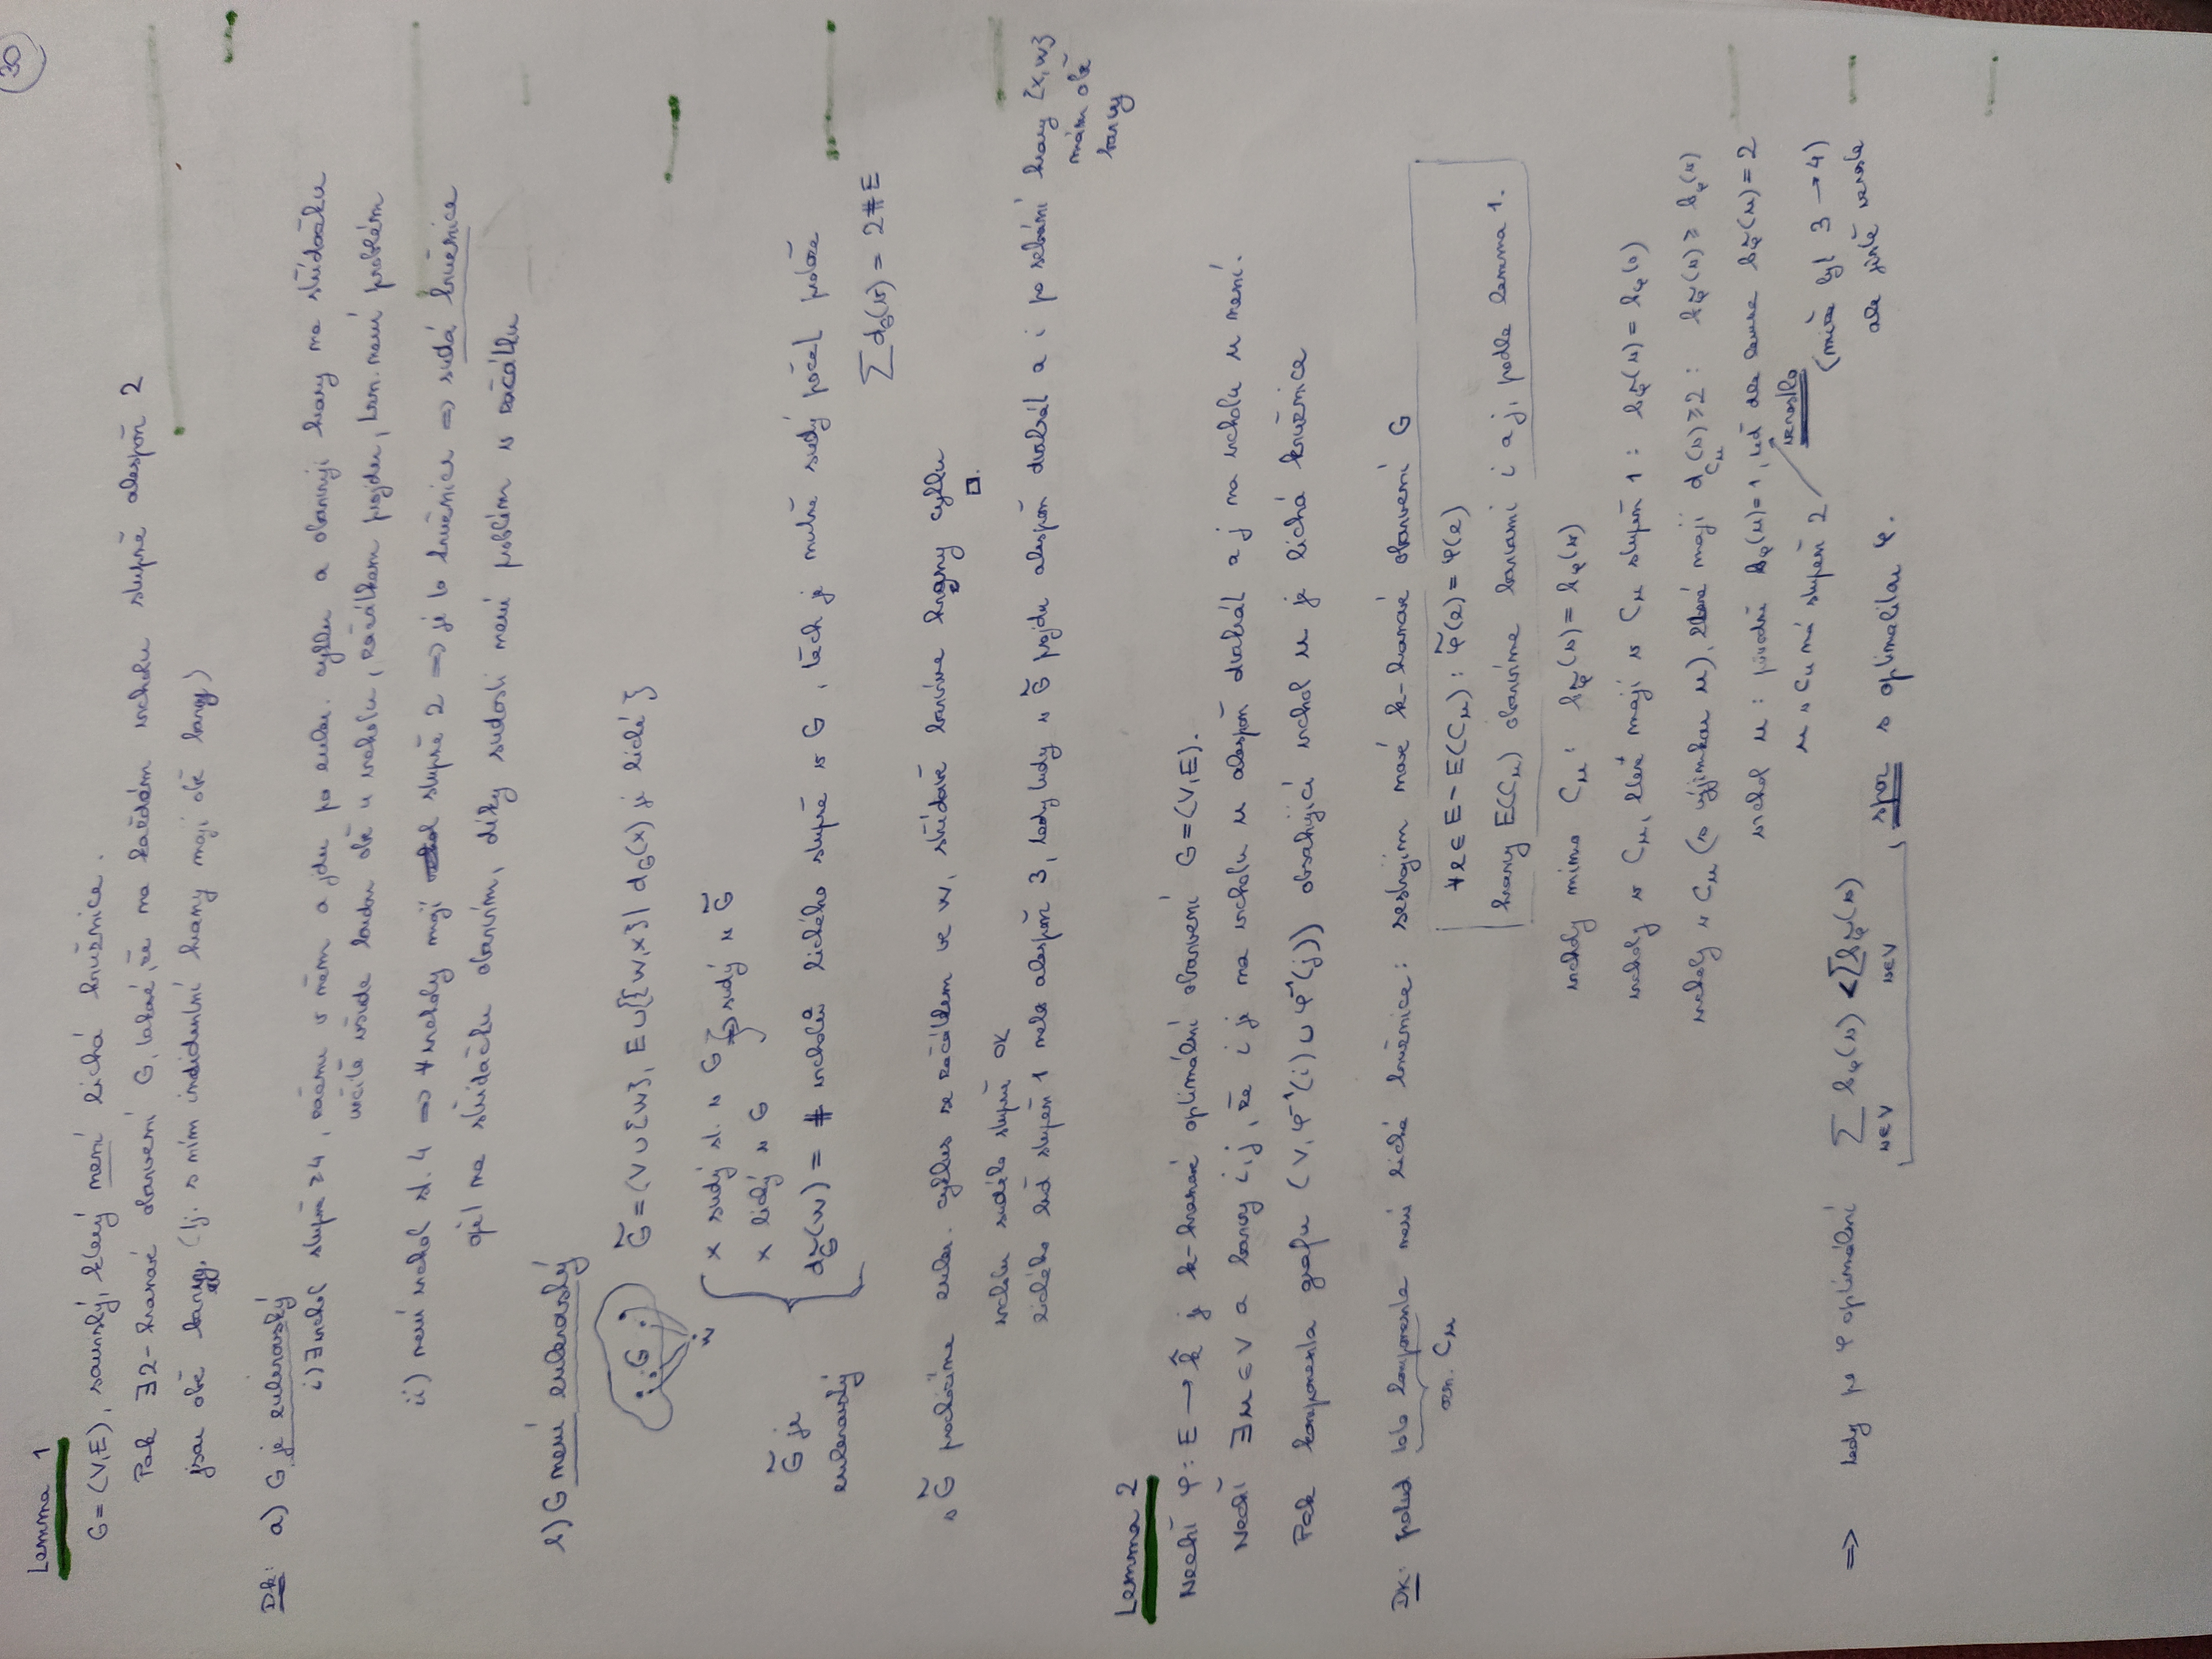 30
Lemma 1
G=(V,E), souvislý, který není lichá kružnice.
Pak ∃ 2-hranové obarvení G, takové, že na každém vrcholu stupně alespoň 2
jsou obě barvy, (tj. s ním incidentní hrany mají obě barvy)
Dk: a) G je eulerovský
i) ∃ vrchol stupň ≥ 4, začnu v něm a jdu po euler. cyklu a obarvuji hrany na střídačku
určitě všude budou obě u vrcholu, začátkem projdu, tzn. není problém
ii) není vrchol st. 4 ⇒ ∀ vrcholy mají stupně 2 ⇒ je to kružnice ⇒ sudá kružnice
opět na střídačku obarvím, díky sudosti není problém v začátku
b) G není eulerovský
G̃ = (V∪{w}, E∪{{w,x}| d_G(x) je liché}
G
w
x sudý st. v G
x lichý v G } sudý v G̃
d_G̃(w) = # vrcholů lichého stupně v G, těch je nutně sudý počet protože
G̃ je
eulerovský
∑ d_G(v) = 2#E
v G̃ procházíme euler. cyklus se začátkem ve w, střídavě barvíme hrany cyklu □.
vrcholu sudého stupně OK
lichého buď stupěň 1 nebo alespoň 3, tedy tudy v G̃ projdu alespoň dvakrát a i po sebrání hrany {x,w}
mám obě
barvy
Lemma 2
Nechť φ: E → k̂ je k-hranové optimální obarvení G=(V,E).
Nechť ∃ u ∈ V a barvy i,j, že i je na vrcholu u alespoň dvakrát a j na vrcholu u není.
Pak komponenta grafu (V, φ⁻¹(i) ∪ φ⁻¹(j)) obsahující vrchol u je lichá kružnice
Dk: pokud tato komponenta není lichá kružnice: sestrojím nové k-hranové obarvení G
ozn. C_u
∀ e ∈ E − E(C_u): φ̃(e) = φ(e)
hrany E(C_u) obarvíme barvami i a j, podle lemma 1.
vrcholy mimo C_u: b_φ̃(v) = b_φ(v)
vrcholy v C_u, které mají v C_u stupěň 1: b_φ̃(v) = b_φ(v)
vrcholy v C_u (s výjimkou u), které mají d_{C_u}(v) ≥ 2: b_φ̃(v) ≥ b_φ(v)
vrchol u: původní b_φ(u)=1, teď ale bude b_φ̃(u) = 2
vzrostlo
u v C_u má stupeň 2
(může být 3 → 4)
ale jistě vzroste
⇒ tedy po φ optimální ∑_{v∈V} b_φ(v) < ∑_{v∈V} b_φ̃(v), spor s optimalitou φ.